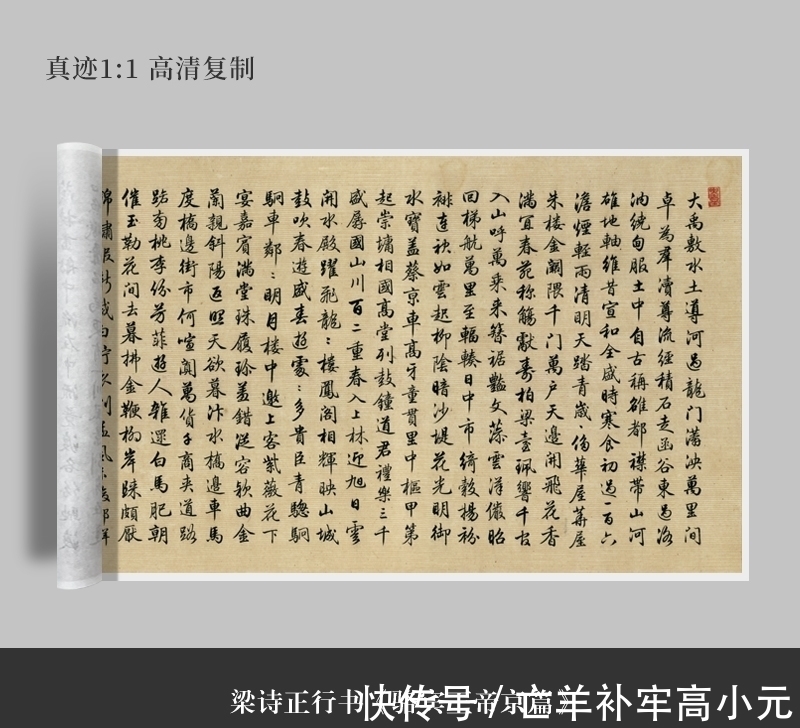 真迹1:1 高清复制
大禹敷水土導河過龍门漭泱萬里间
卓為羣瀆尊流經積石走函谷東過洛
汭繞甸服土中自古稱雄都襟帶山河
雄地軸維昔宣和全盛時寒食初過一百六
澹煙輕雨清明天踏青歲〻傷華屋薜屋
朱楼金闕隈千门萬户天邊開飛花香
滿宜春苑称觴獻壽柏梁臺珮響千官
入山呼萬乘来簪裾艷文藻雲洋儼昭
回梯航萬里至輻輳日中市綺縠楊袮
袾連袂如雲起柳陰暗沙堤花光明御
水寶盖蔡京車高牙童貫里中樞甲第
起崇墉相國高堂列鼓鐘道君禮樂三千
盛孱國山川百二重春入上林迎旭日雲
開水殿躍飛龍〻樓鳳阁相輝映山城
鼓吹春遊盛春遊處〻多貴臣青驄駉
駉車鄰〻明月楼中邀上客紫薇花下
宴嘉賓滿堂珠履珍盖錯從容欵曲金
蘭親斜陽返照天欲暮汴水橋邊車馬
度橋邊街市何喧闐萬貨子商夹道路
路南桃李份芳菲遊人雜遝白馬肥朝
催玉勒花间去暮拂金鞭柳岸歸頗厭
梁诗正行书
帝京篇》
快传号 / 亡羊补牢高小元